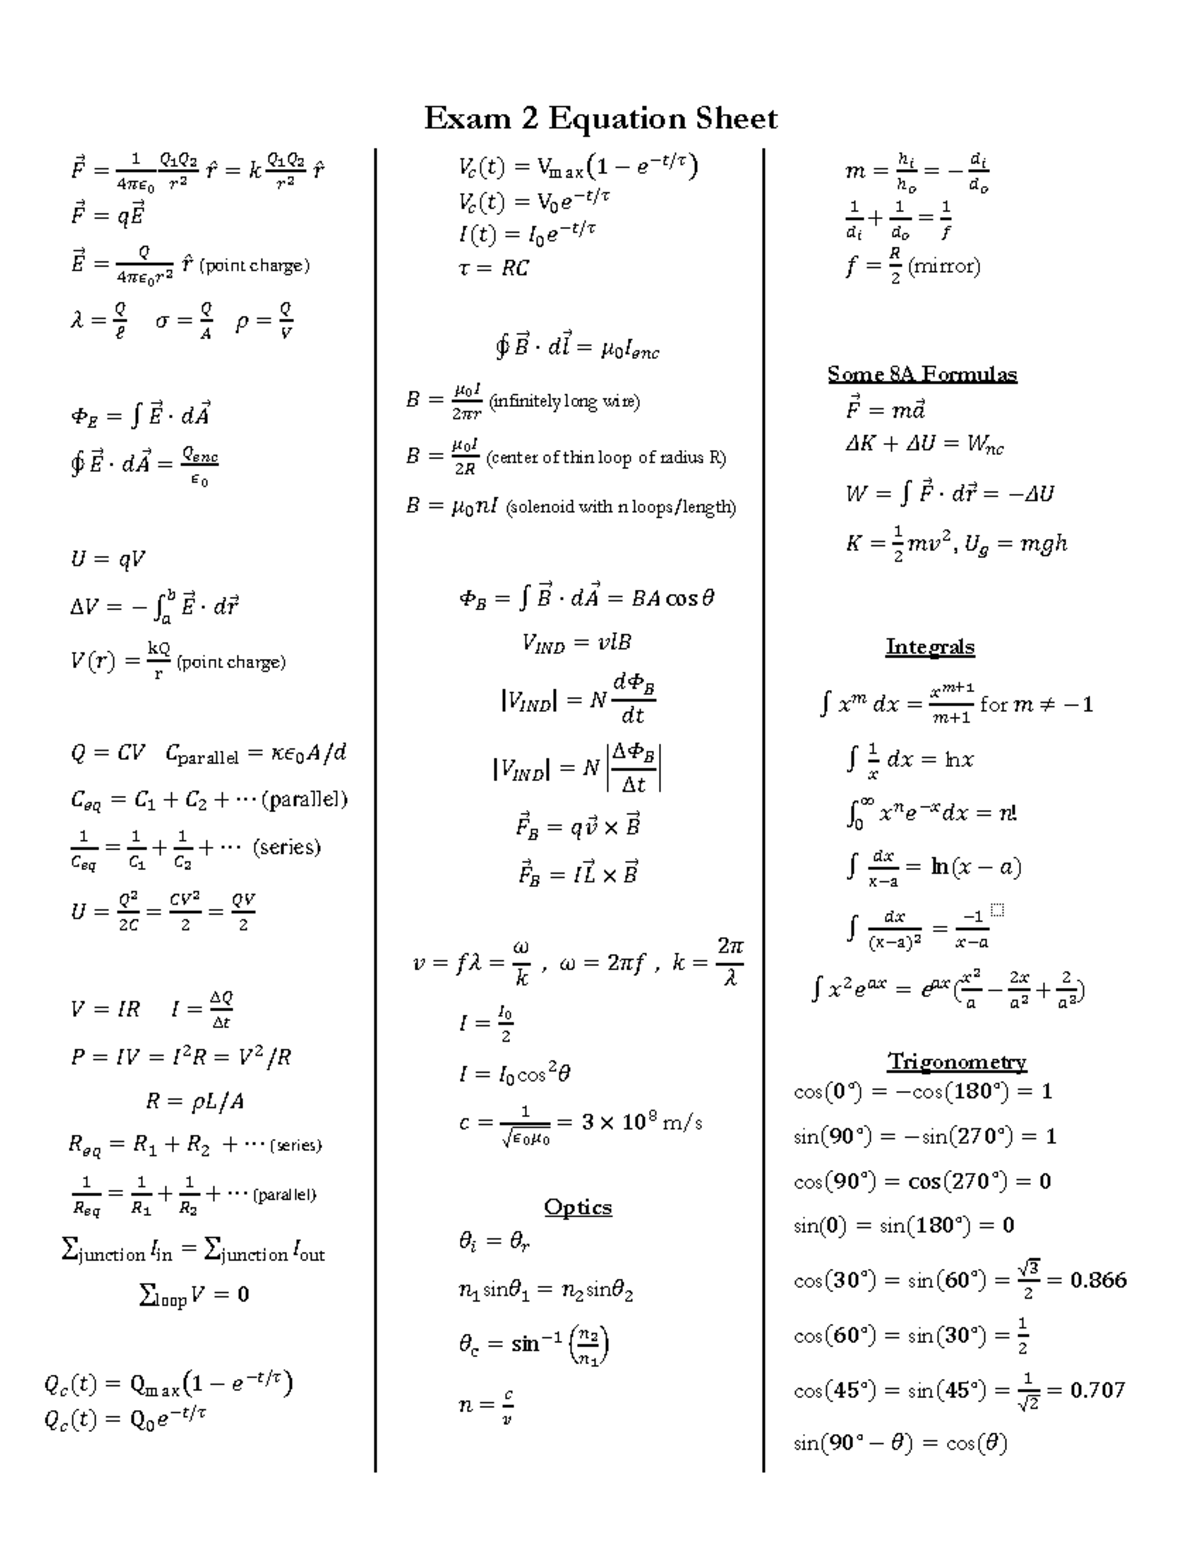 Exam 2 Equation Sheet
F⃗ = 1/(4πϵ₀) Q₁Q₂/r² r̂ = k Q₁Q₂/r² r̂
F⃗ = qE⃗
E⃗ = Q/(4πϵ₀r²) r̂ (point charge)
λ = Q/ℓ σ = Q/A ρ = Q/V
Φ_E = ∫ E⃗ · dA⃗
∮ E⃗ · dA⃗ = Q_enc/ϵ₀
U = qV
ΔV = − ∫_a^b E⃗ · dr⃗
V(r) = kQ/r (point charge)
Q = CV C_parallel = κϵ₀A/d
C_eq = C₁ + C₂ + ⋯ (parallel)
1/C_eq = 1/C₁ + 1/C₂ + ⋯ (series)
U = Q²/2C = CV²/2 = QV/2
V = IR I = ΔQ/Δt
P = IV = I²R = V²/R
R = ρL/A
R_eq = R₁ + R₂ + ⋯ (series)
1/R_eq = 1/R₁ + 1/R₂ + ⋯ (parallel)
∑_junction I_in = ∑_junction I_out
∑_loop V = 0
Q_c(t) = Q_max(1 − e^(−t/τ))
Q_c(t) = Q₀e^(−t/τ)
V_c(t) = V_max(1 − e^(−t/τ))
V_c(t) = V₀e^(−t/τ)
I(t) = I₀e^(−t/τ)
τ = RC
∮ B⃗ · dl⃗ = μ₀I_enc
B = μ₀I/2πr (infinitely long wire)
B = μ₀I/2R (center of thin loop of radius R)
B = μ₀nI (solenoid with n loops/length)
Φ_B = ∫ B⃗ · dA⃗ = BA cos θ
V_IND = vlB
|V_IND| = N dΦ_B/dt
|V_IND| = N |ΔΦ_B/Δt|
F⃗_B = qv⃗ × B⃗
F⃗_B = IL⃗ × B⃗
v = fλ = ω/k , ω = 2πf , k = 2π/λ
I = I₀/2
I = I₀cos²θ
c = 1/√(ϵ₀μ₀) = 3 × 10⁸ m/s
Optics
θ_i = θ_r
n₁sinθ₁ = n₂sinθ₂
θ_c = sin⁻¹ (n₂/n₁)
n = c/v
m = h_i/h_o = − d_i/d_o
1/d_i + 1/d_o = 1/f
f = R/2 (mirror)
Some 8A Formulas
F⃗ = ma⃗
ΔK + ΔU = W_nc
W = ∫ F⃗ · dr⃗ = −ΔU
K = 1/2 mv², U_g = mgh
Integrals
∫ x^m dx = x^(m+1)/(m+1) for m ≠ −1
∫ 1/x dx = lnx
∫_0^∞ xⁿe^(−x)dx = n!
∫ dx/(x−a) = ln(x − a)
∫ dx/(x−a)² = −1/(x−a)
∫ x²e^(ax) = e^(ax)(x²/a − 2x/a² + 2/a³)
Trigonometry
cos(0°) = −cos(180°) = 1
sin(90°) = −sin(270°) = 1
cos(90°) = cos(270°) = 0
sin(0) = sin(180°) = 0
cos(30°) = sin(60°) = √3/2 = 0.866
cos(60°) = sin(30°) = 1/2
cos(45°) = sin(45°) = 1/√2 = 0.707
sin(90° − θ) = cos(θ)